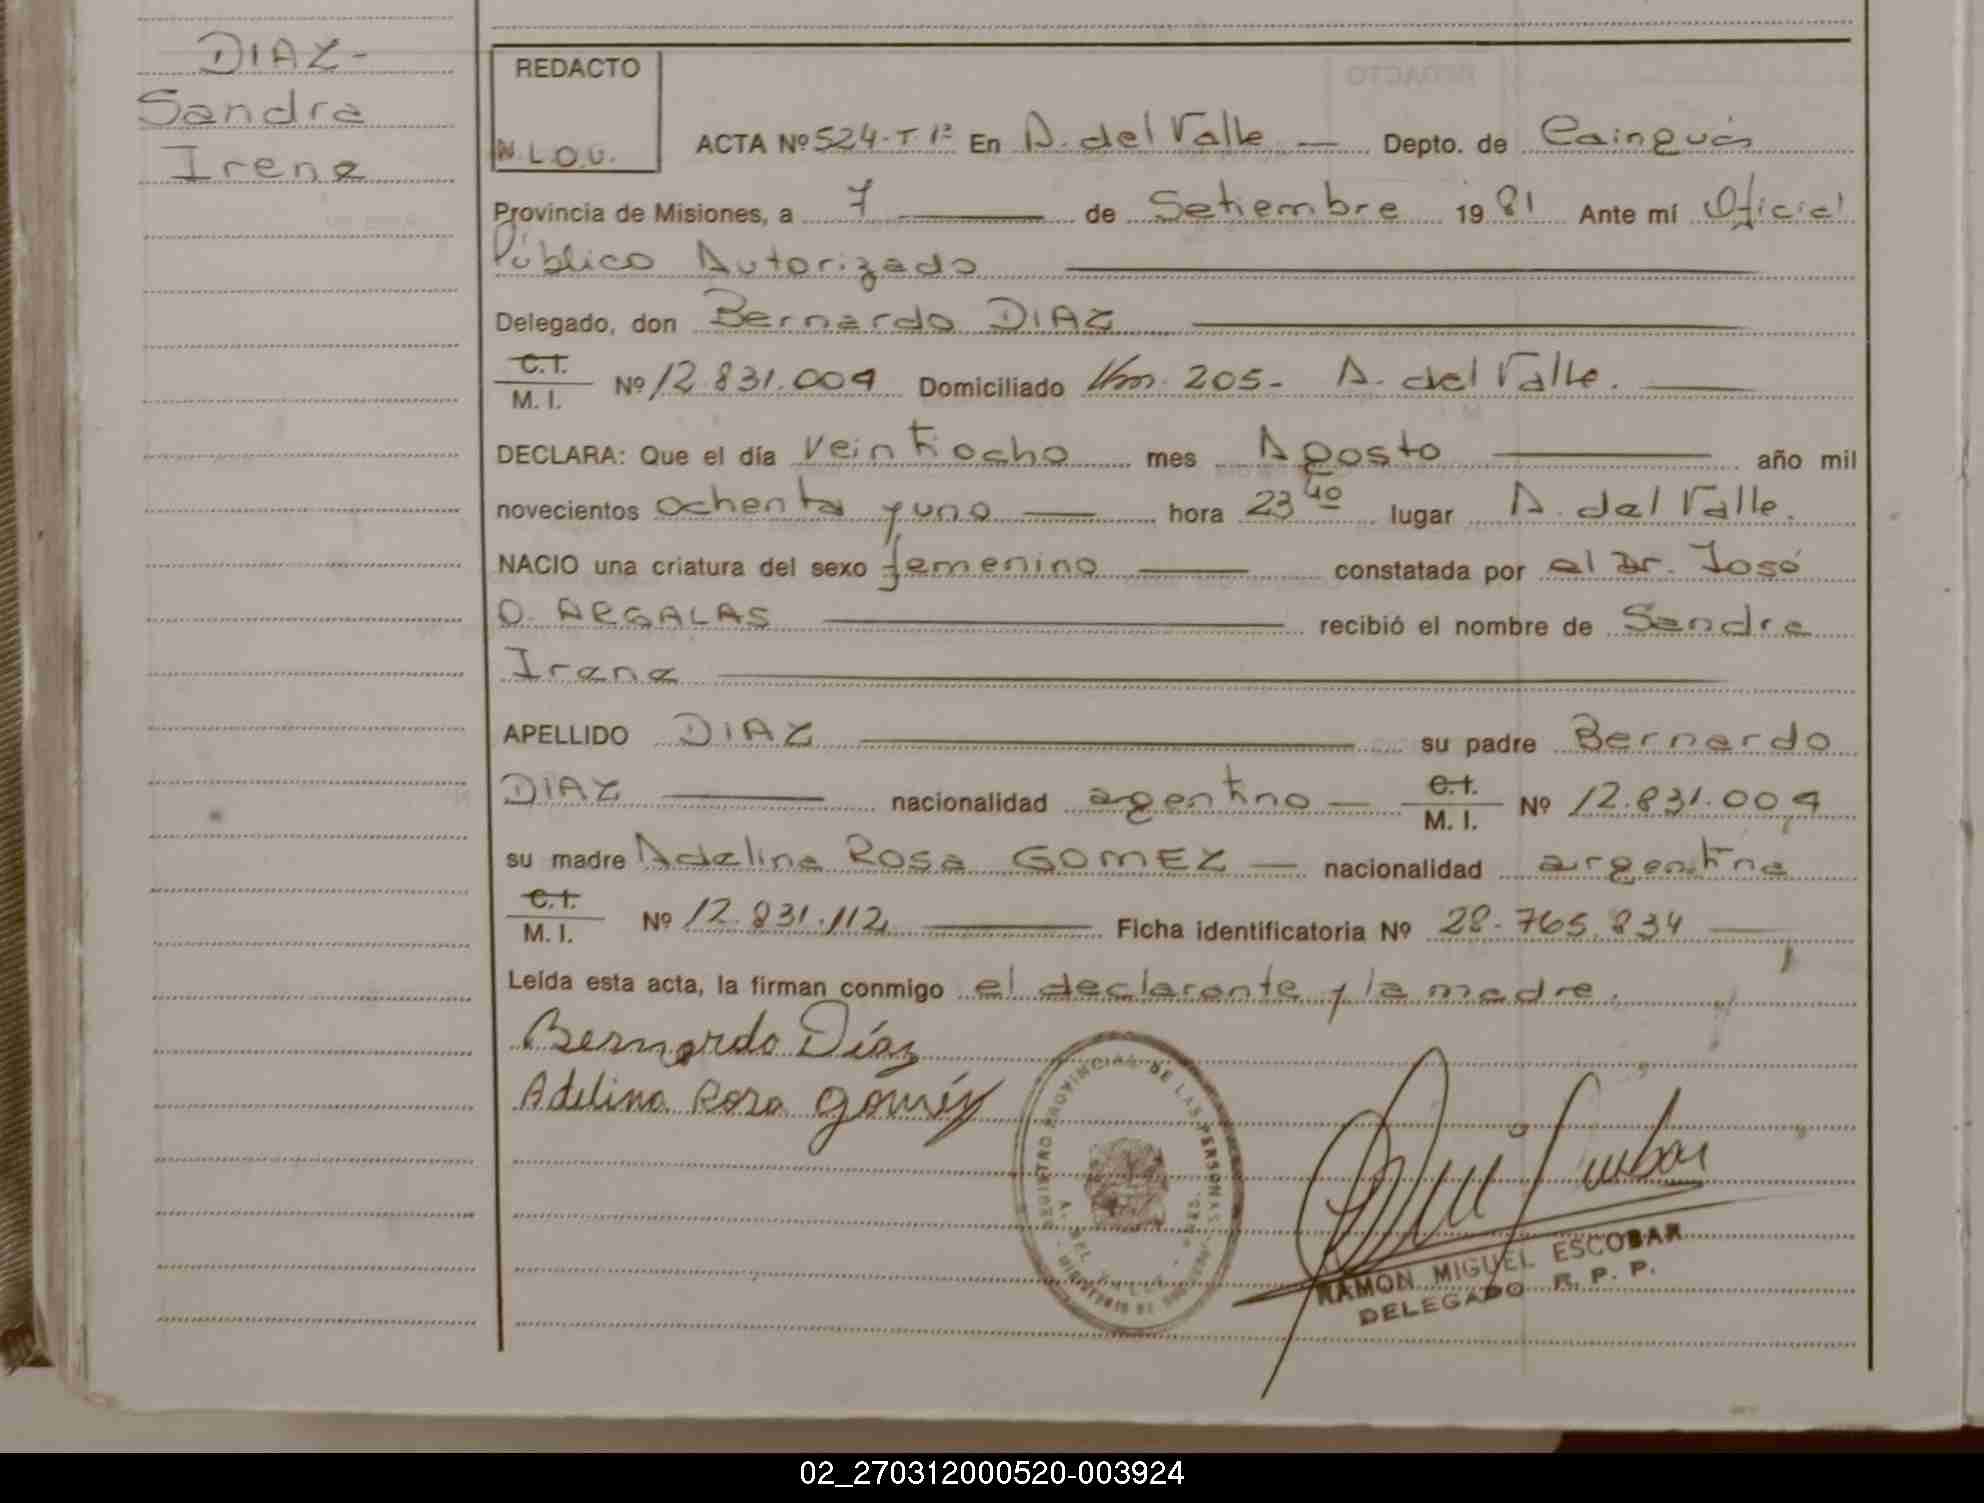 DIAZ-
Sandra
Irene
REDACTO
N.L.O.U.
ACTA Nº 524-T 1º En A. del Valle — Depto. de Cainguás
Provincia de Misiones, a 7 — de Setiembre 1981 Ante mí Oficial
Público Autorizado
Delegado, don Bernardo DIAZ
C.I.
M. I. Nº 12.831.009 Domiciliado Km. 205- A. del Valle.
DECLARA: Que el día veintiocho mes Agosto — año mil
novecientos ochenta y uno — hora 23 40 lugar A. del Valle.
NACIO una criatura del sexo femenino — constatada por el Dr. José
O. ARGALAS — recibió el nombre de Sandra
Irene
APELLIDO DIAZ — su padre Bernardo
DIAZ — nacionalidad agentino — C.I.
M. I. Nº 12.831.009
su madre Adelina Rosa GOMEZ — nacionalidad argentina
C.I.
M. I. Nº 12.831.112 — Ficha identificatoria Nº 28.765.834
Leída esta acta, la firman conmigo el declarante y la madre.
Bernardo Díaz
Adelina Rosa Goméz
REGISTRO PROVINCIAL DE LAS PERSONAS
A. DEL VALLE
RAMON MIGUEL ESCOBAR
DELEGADO R. P. P.
02_270312000520-003924